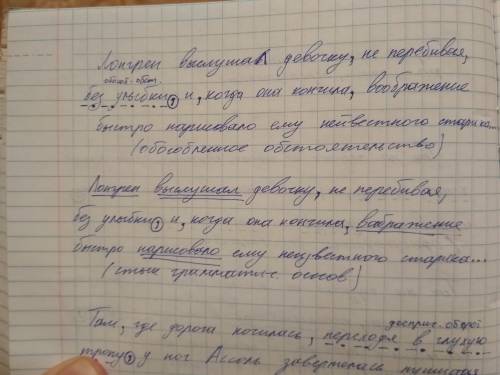 Лонгрен выслушал девочку, не перебивая,
обособ. обст.
без улыбки 1 и, когда она кончила, воображение
быстро нарисовало ему неизвестного старика...
(обособленное обстоятельство)
Лонгрен выслушал девочку, не перебивая,
без улыбки 1 и, когда она кончила, воображение
быстро нарисовало ему неизвестного старика...
(стык грамматич-с основ)
дееприч. оборот
Там, где дорога кончилась, переходя в глухую
тропу 1 у ног Ассоль завертелась пушистая